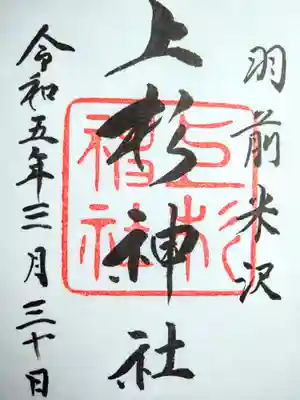 羽前米沢
上杉神社
上杉神社
令和五年三月三十日